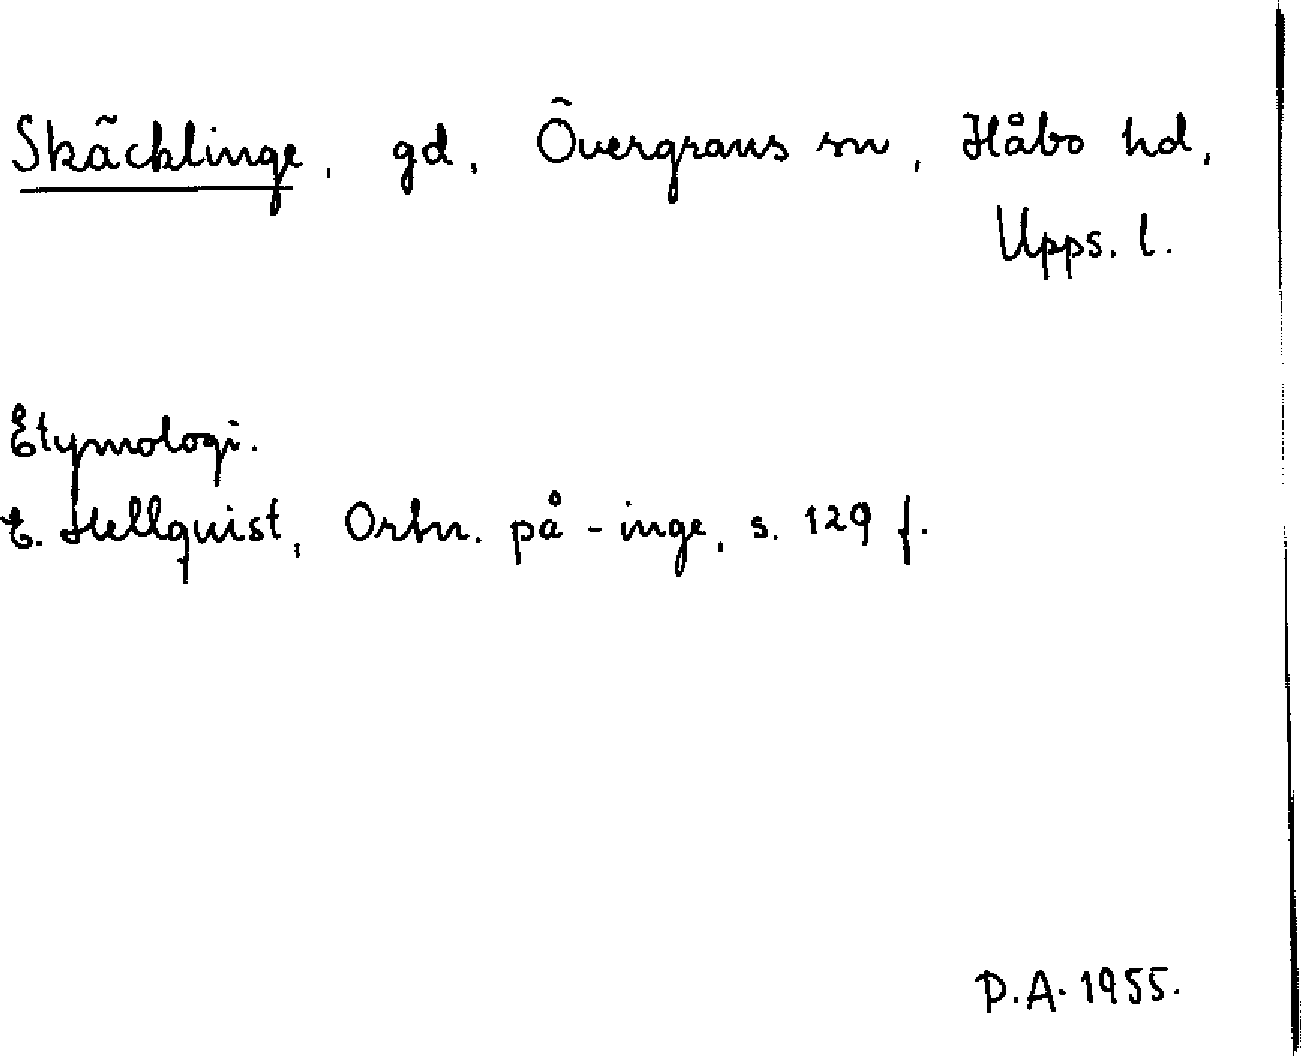 Skäcklinge, gd, Övergrans sn, Håbo hd,
Upps. l.
Etymologi.
E. Hellquist, Ortn. på -inge, s. 129 f.
P.A. 1955.